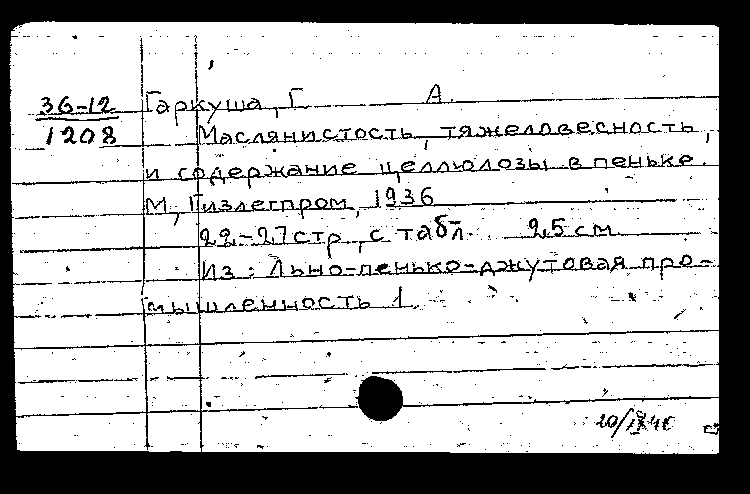 36-12 Гаркуша, Г. А.
1208 Маслянистость, тяжеловесность,
и содержание целлюлозы в пеньке.
М, Гизлегпром, 1936
22-27 стр., с табл. 25 см.
Из: Льно-пенько-джутовая про-
мышленность 1.